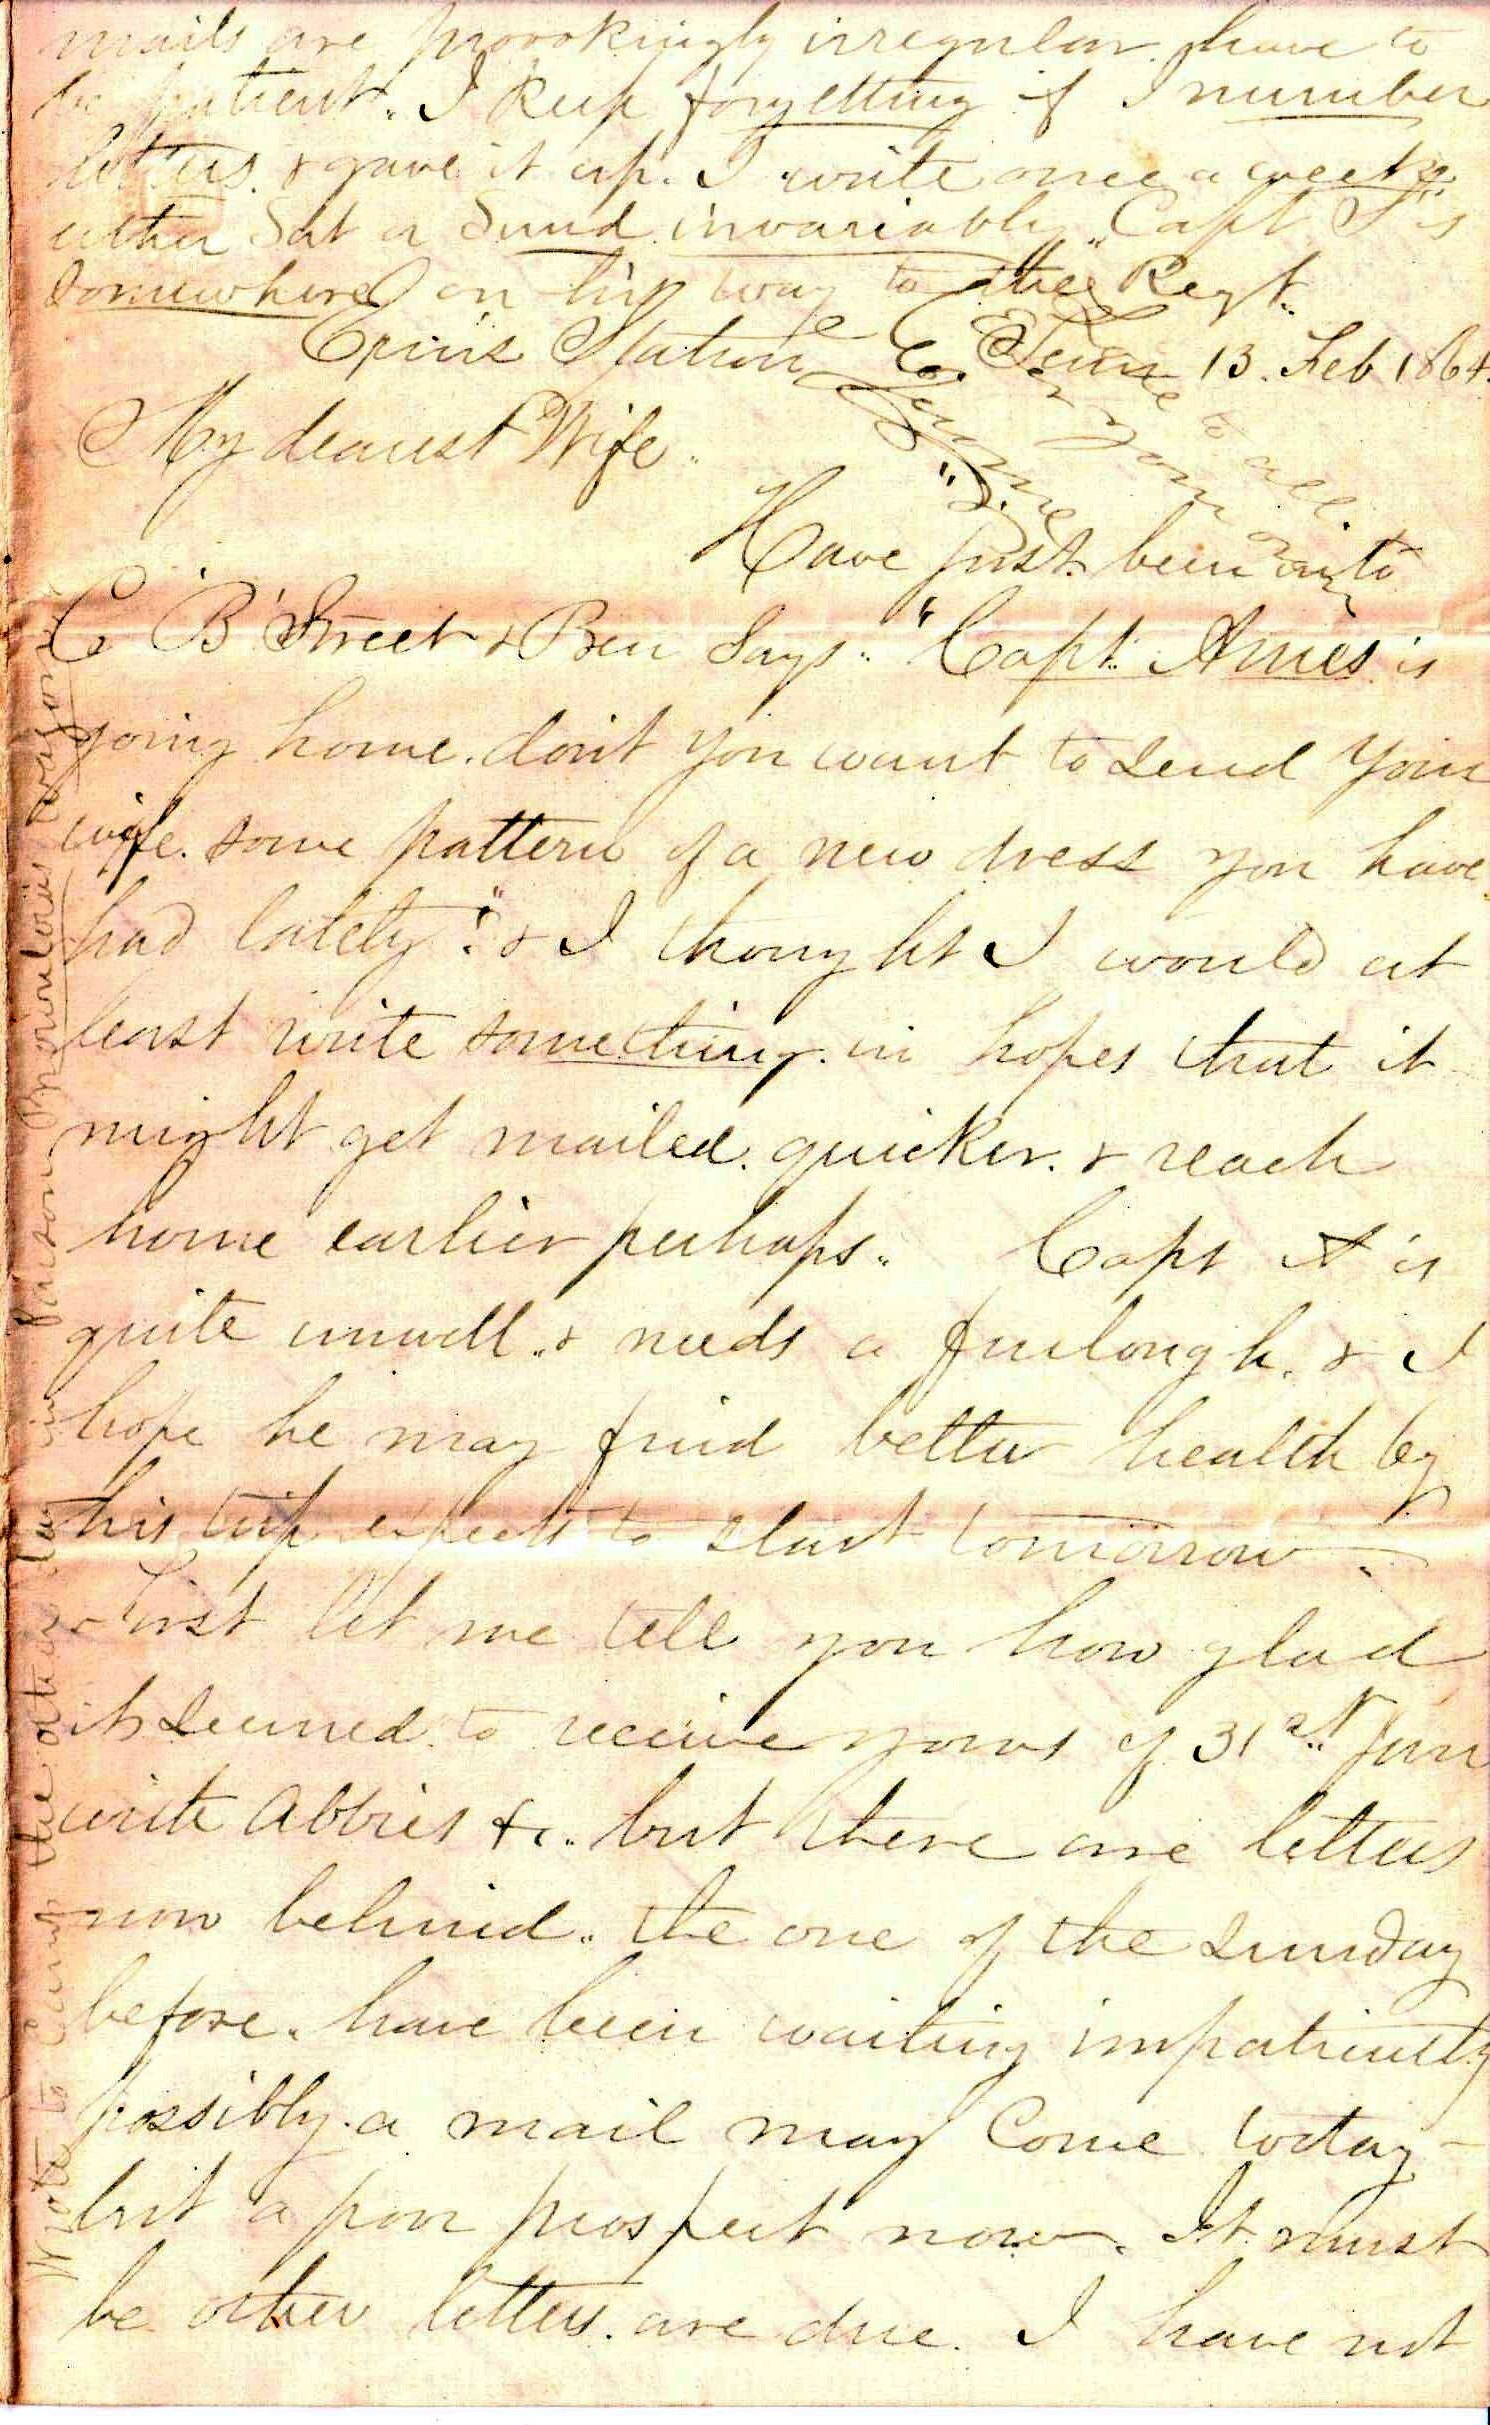 mails are provokingly irregular. have to
be patient.. I keep forgetting if I number
letters. & gave it up. I write once a week
either Sat or Sund. invariably.. Capt S is
somewhere on his way to the Regt..
Station E Tenn 13. Feb 1864.
My dearest Wife..
to all
Have just been in to
C B Street & Ben Says.. "Capt. Ames is
going home. don't you want to send your
wife. some pattern of a new dress you have
had lately?" & I thought I would at
least write something. in hopes that it
might get mailed. quicker. & reach
home earlier perhaps.. Capt A is
quite unwell.. & needs a furlough. & I
hope he may find better health by
his trip expects to start tomorrow.
First let me tell you how glad
it seemed to receive yours of 31st.. Jan
with Abbies &c.. but there are letters
now behind.. the one of the Sunday
before. have been waiting impatiently
possibly. a mail may Come today -
but a poor prospect now. It must
be other letters. are due. I have not
Wrote to the other day in Parson Brownlows wagon